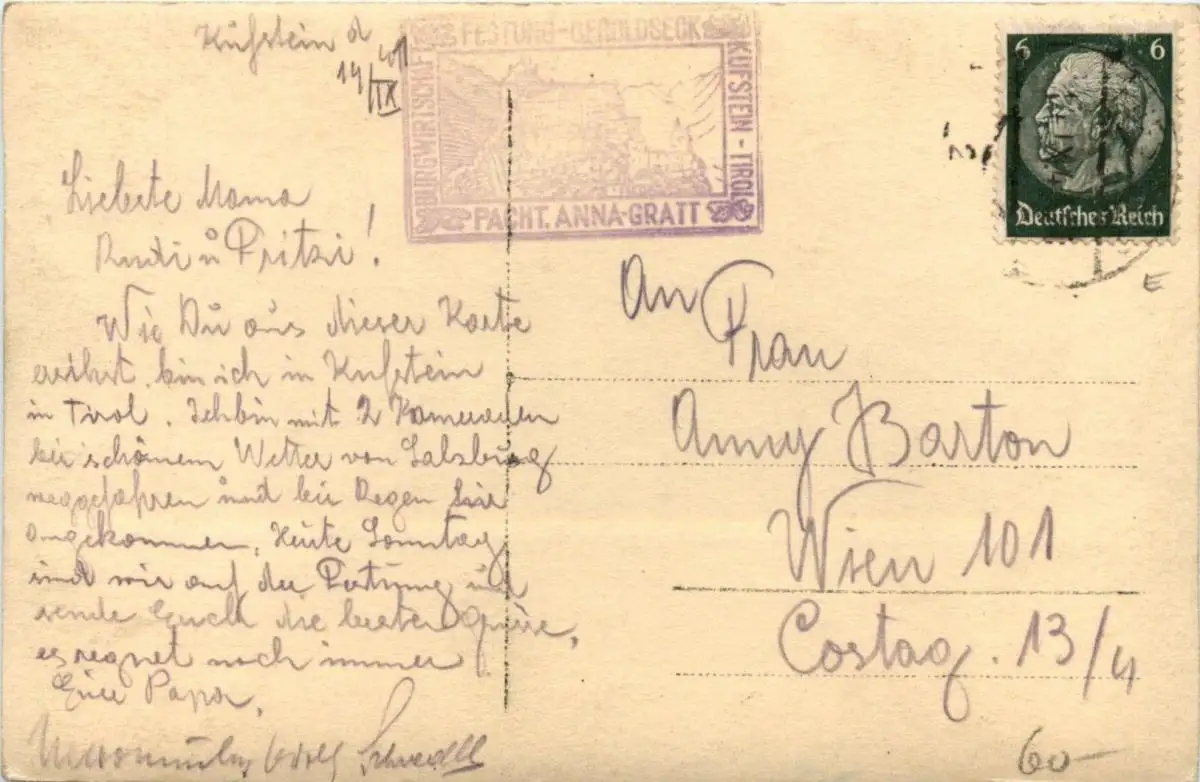 Kufstein d
14/IX 41
FESTUNG-GEROLDSECK
BURGWIRTSCHAFT
KUFSTEIN-TIROL
PACHT. ANNA-GRATT
6 6
Deutsches Reich
Liebste Mama
Rudi u Fritzi!
Wie Du aus dieser Karte
erfährst, bin ich in Kufstein
in Tirol. Ich bin mit 2 Kameraden
bei schönem Wetter von Salzburg
weggefahren und bei Regen hier
angekommen. Heute Sonntag
sind wir auf der Festung und
sende Euch die besten Grüße,
es regnet noch immer
Euer Papa.
An
Frau
Anny Barton
Wien 101
Costag. 13/4
E
60-